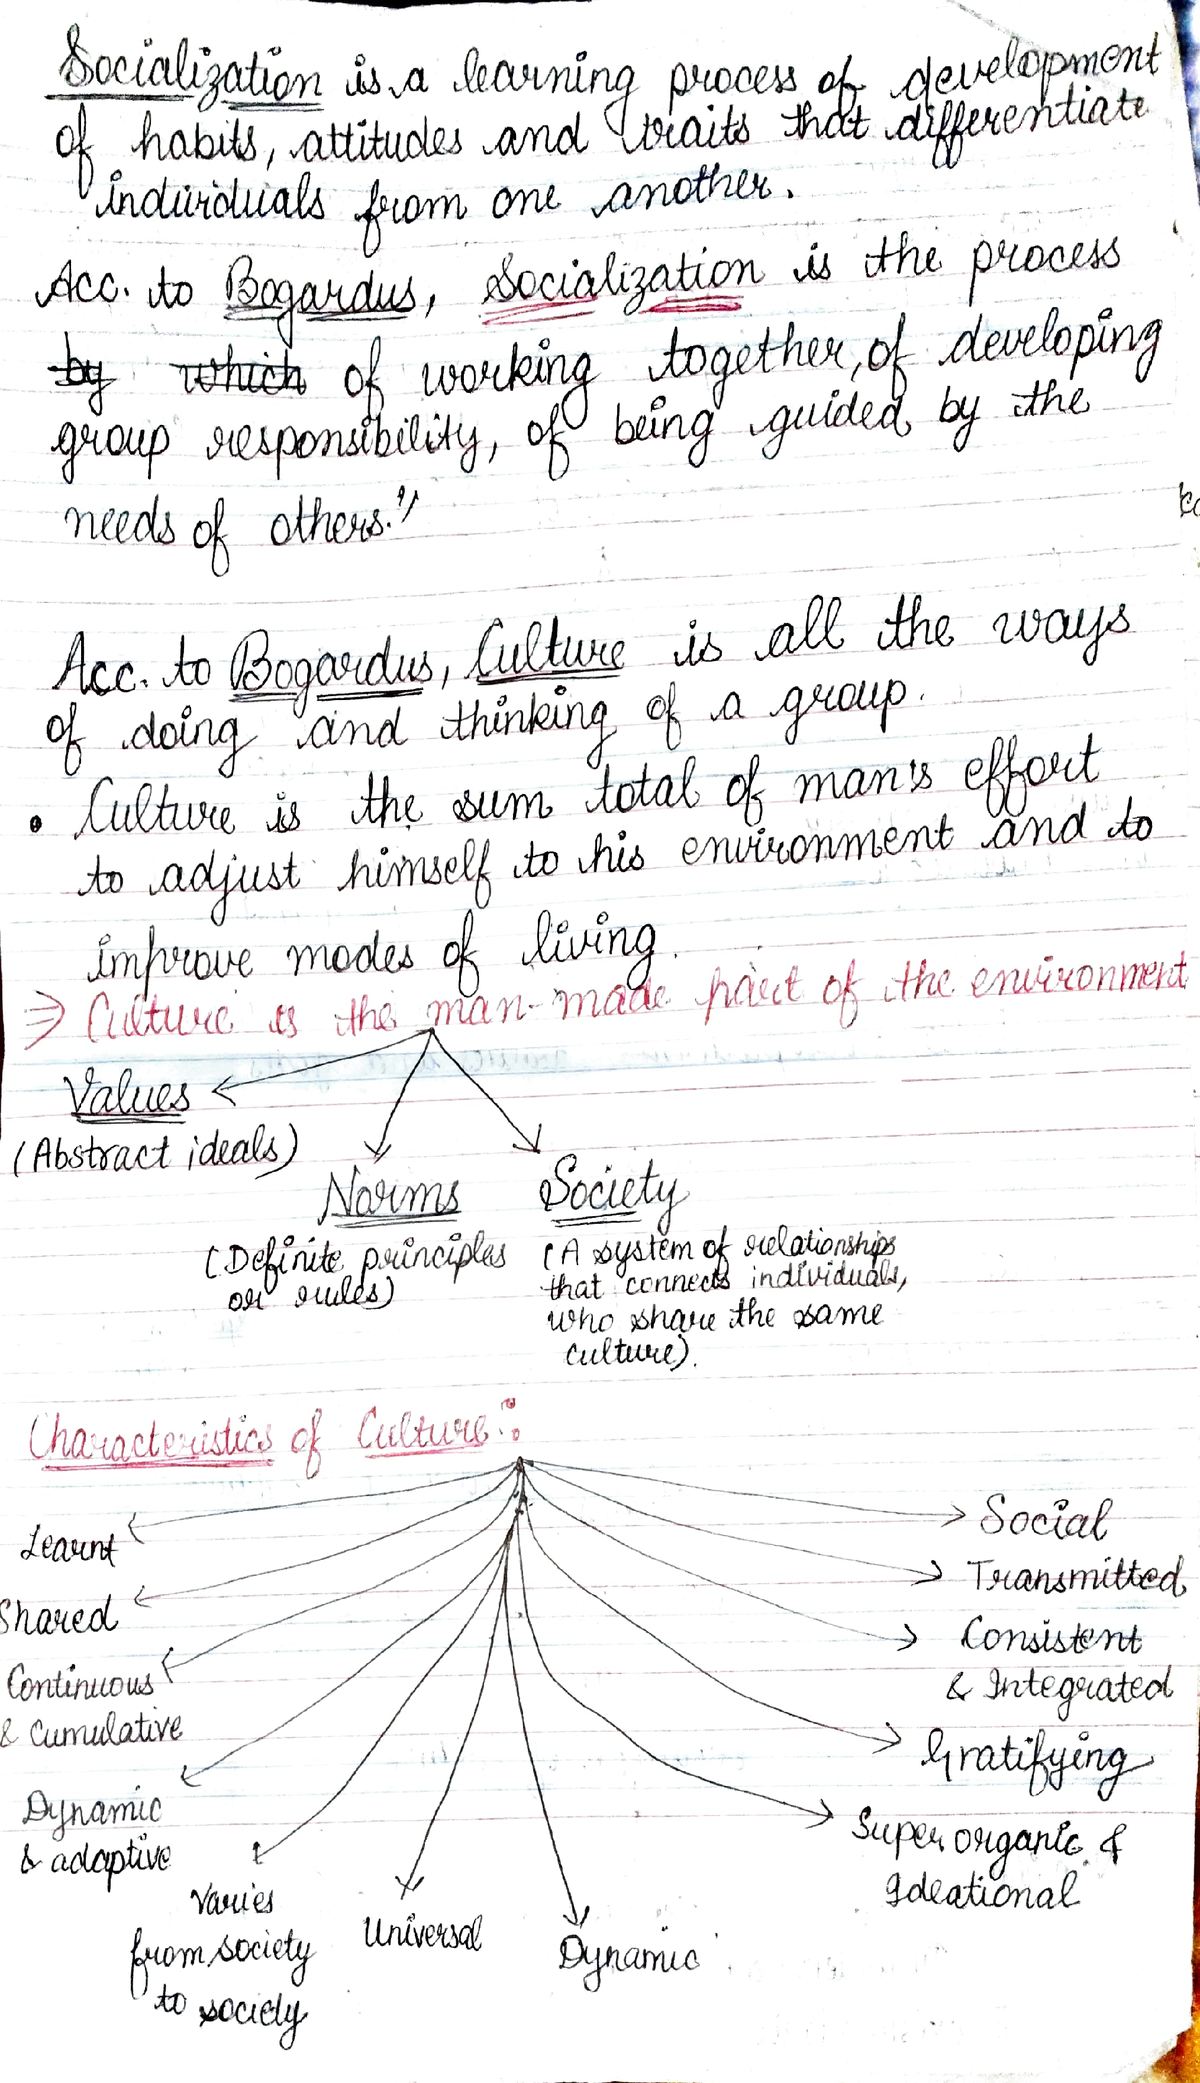 Socialization is a learning process of development
of habits, attitudes and traits that differentiate
individuals from one another.
Acc. to Bogardus, Socialization is the process
by which of working together, of developing
group responsibility, of being guided by the
needs of others."
Acc. to Bogardus, Culture is all the ways
of doing and thinking of a group.
• Culture is the sum total of man's effort
to adjust himself to his environment and to
improve modes of living.
⇒ Culture is the man-made part of the environment
Values
(Abstract ideals)
Norms
(Definite principles
or rules)
Society
(A system of relationships
that connects individuals,
who share the same
culture).
Characteristics of Culture:
Learnt
Shared
Continuous
& Cumulative
Dynamic
& adaptive
Varies
from society
to society
Universal
Dynamic
Social
Transmitted
Consistent
& Integrated
Gratifying
Super organic &
Ideational